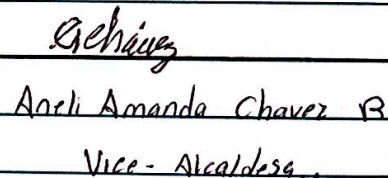 Aneli Amanda Chavez B
Vice - Alcaldesa.